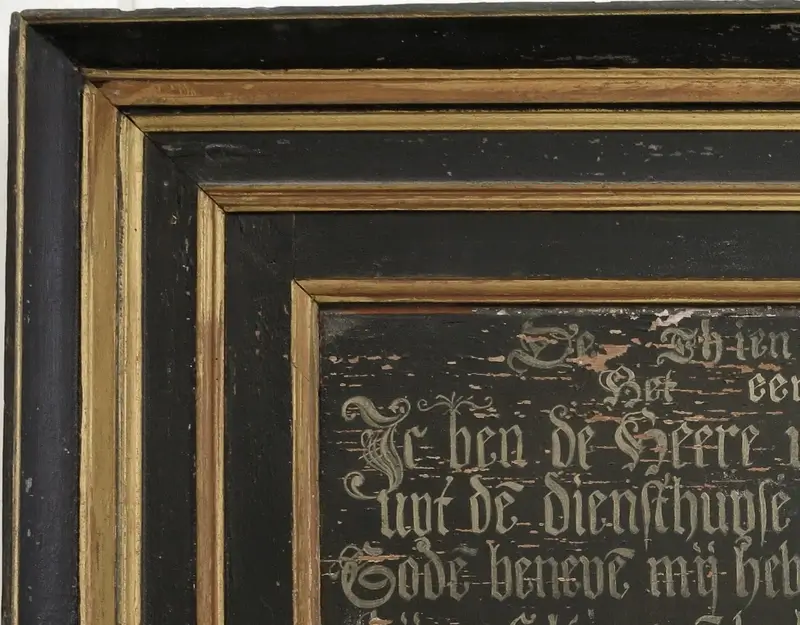 De Thien
Het eer
Ic ben de Heere u
uyt dē diensthuyse
Gode benevē mij heb